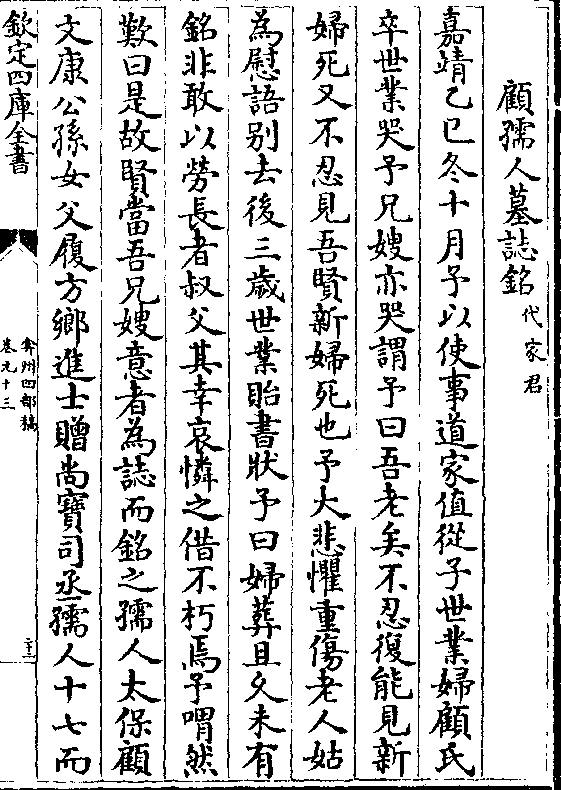 顧孺人墓誌銘代家君
嘉靖乙巳冬十月予以使事道家值從子世業婦顧氏
卒世業哭予兄嫂亦哭謂予曰吾老矣不忍復能見新
婦死又不忍見吾賢新婦死也予大悲懼重傷老人姑
為慰語别去後三歲世業貽書狀予曰婦葬且久未有
銘非敢以勞長者叔父其幸哀憐之借不朽焉予喟然
歎曰是故賢當吾兄嫂意者為誌而銘之孺人太保顧
文康公孫女父履方鄉進士贈尚寶司丞孺人十七而
欽定四庫全書
弇州四部稿
卷九十三
二十二